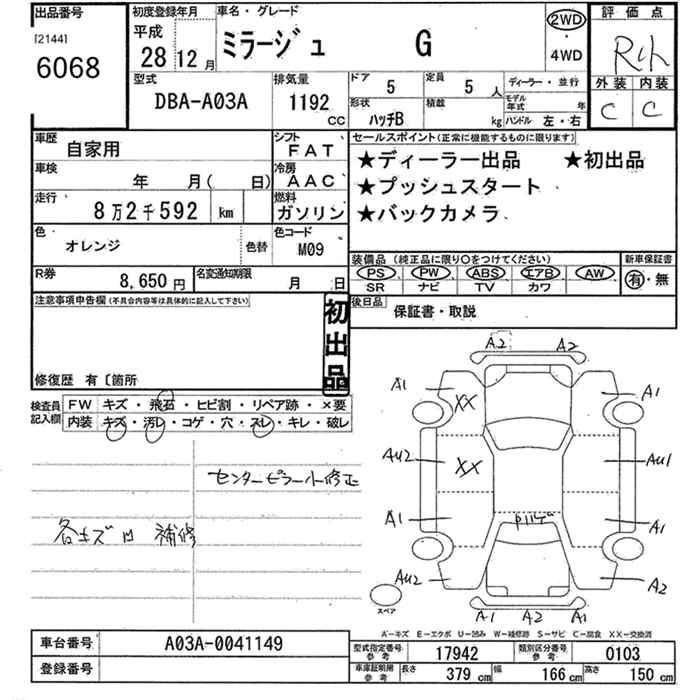 出品番号 初度登録年月 車名・グレード 評価点
[2144] 6068 平成 28 12月 ミラージュ G 2WD・4WD
型式 DBA-A03A 排気量 1192 CC ドア 5 定員 5人 ディーラー・並行
形状 ハッチB 積載 kg モデル年式 年 ハンドル 左・右
外装 C 内装 C
車歴 自家用 シフト FAT セールスポイント(正常に機能するものに限ります)
車検 年 月( 日) 冷房 AAC ★ディーラー出品 ★初出品
走行 8万2千592 km 燃料 ガソリン ★プッシュスタート
★バックカメラ
色 オレンジ 色替 色コード M09
装備品(純正品に限り○をつけてください) 新車保証書
PS PW ABS エアB AW 有・無
SR ナビ TV カワ
R券 8,650円 名変通知期限 月 日
後日品 保証書・取説
注意事項申告欄(不具合内容等は具体的に記入して下さい)
初出品
修復歴 有〔箇所
検査員記入欄 FW キズ・飛石・ヒビ割・リペア跡・×要
内装 キズ・汚レ・コゲ・穴・スレ・キレ・破レ
センターピラー小修正
各キズ凹 補修
A2 A2
A1 XX A1
AU2 XX AU1
A1 A1
AU2 A2
スペア A1 A2 A1
A-キズ E-エクボ U-凹み W-補修跡 S-サビ C-腐食 XX-交換済
車台番号 A03A-0041149
登録番号
型式指定番号 参考 17942 類別区分番号 参考 0103
車庫証明用 参考 長さ 379 cm 幅 166 cm 高さ 150 cm